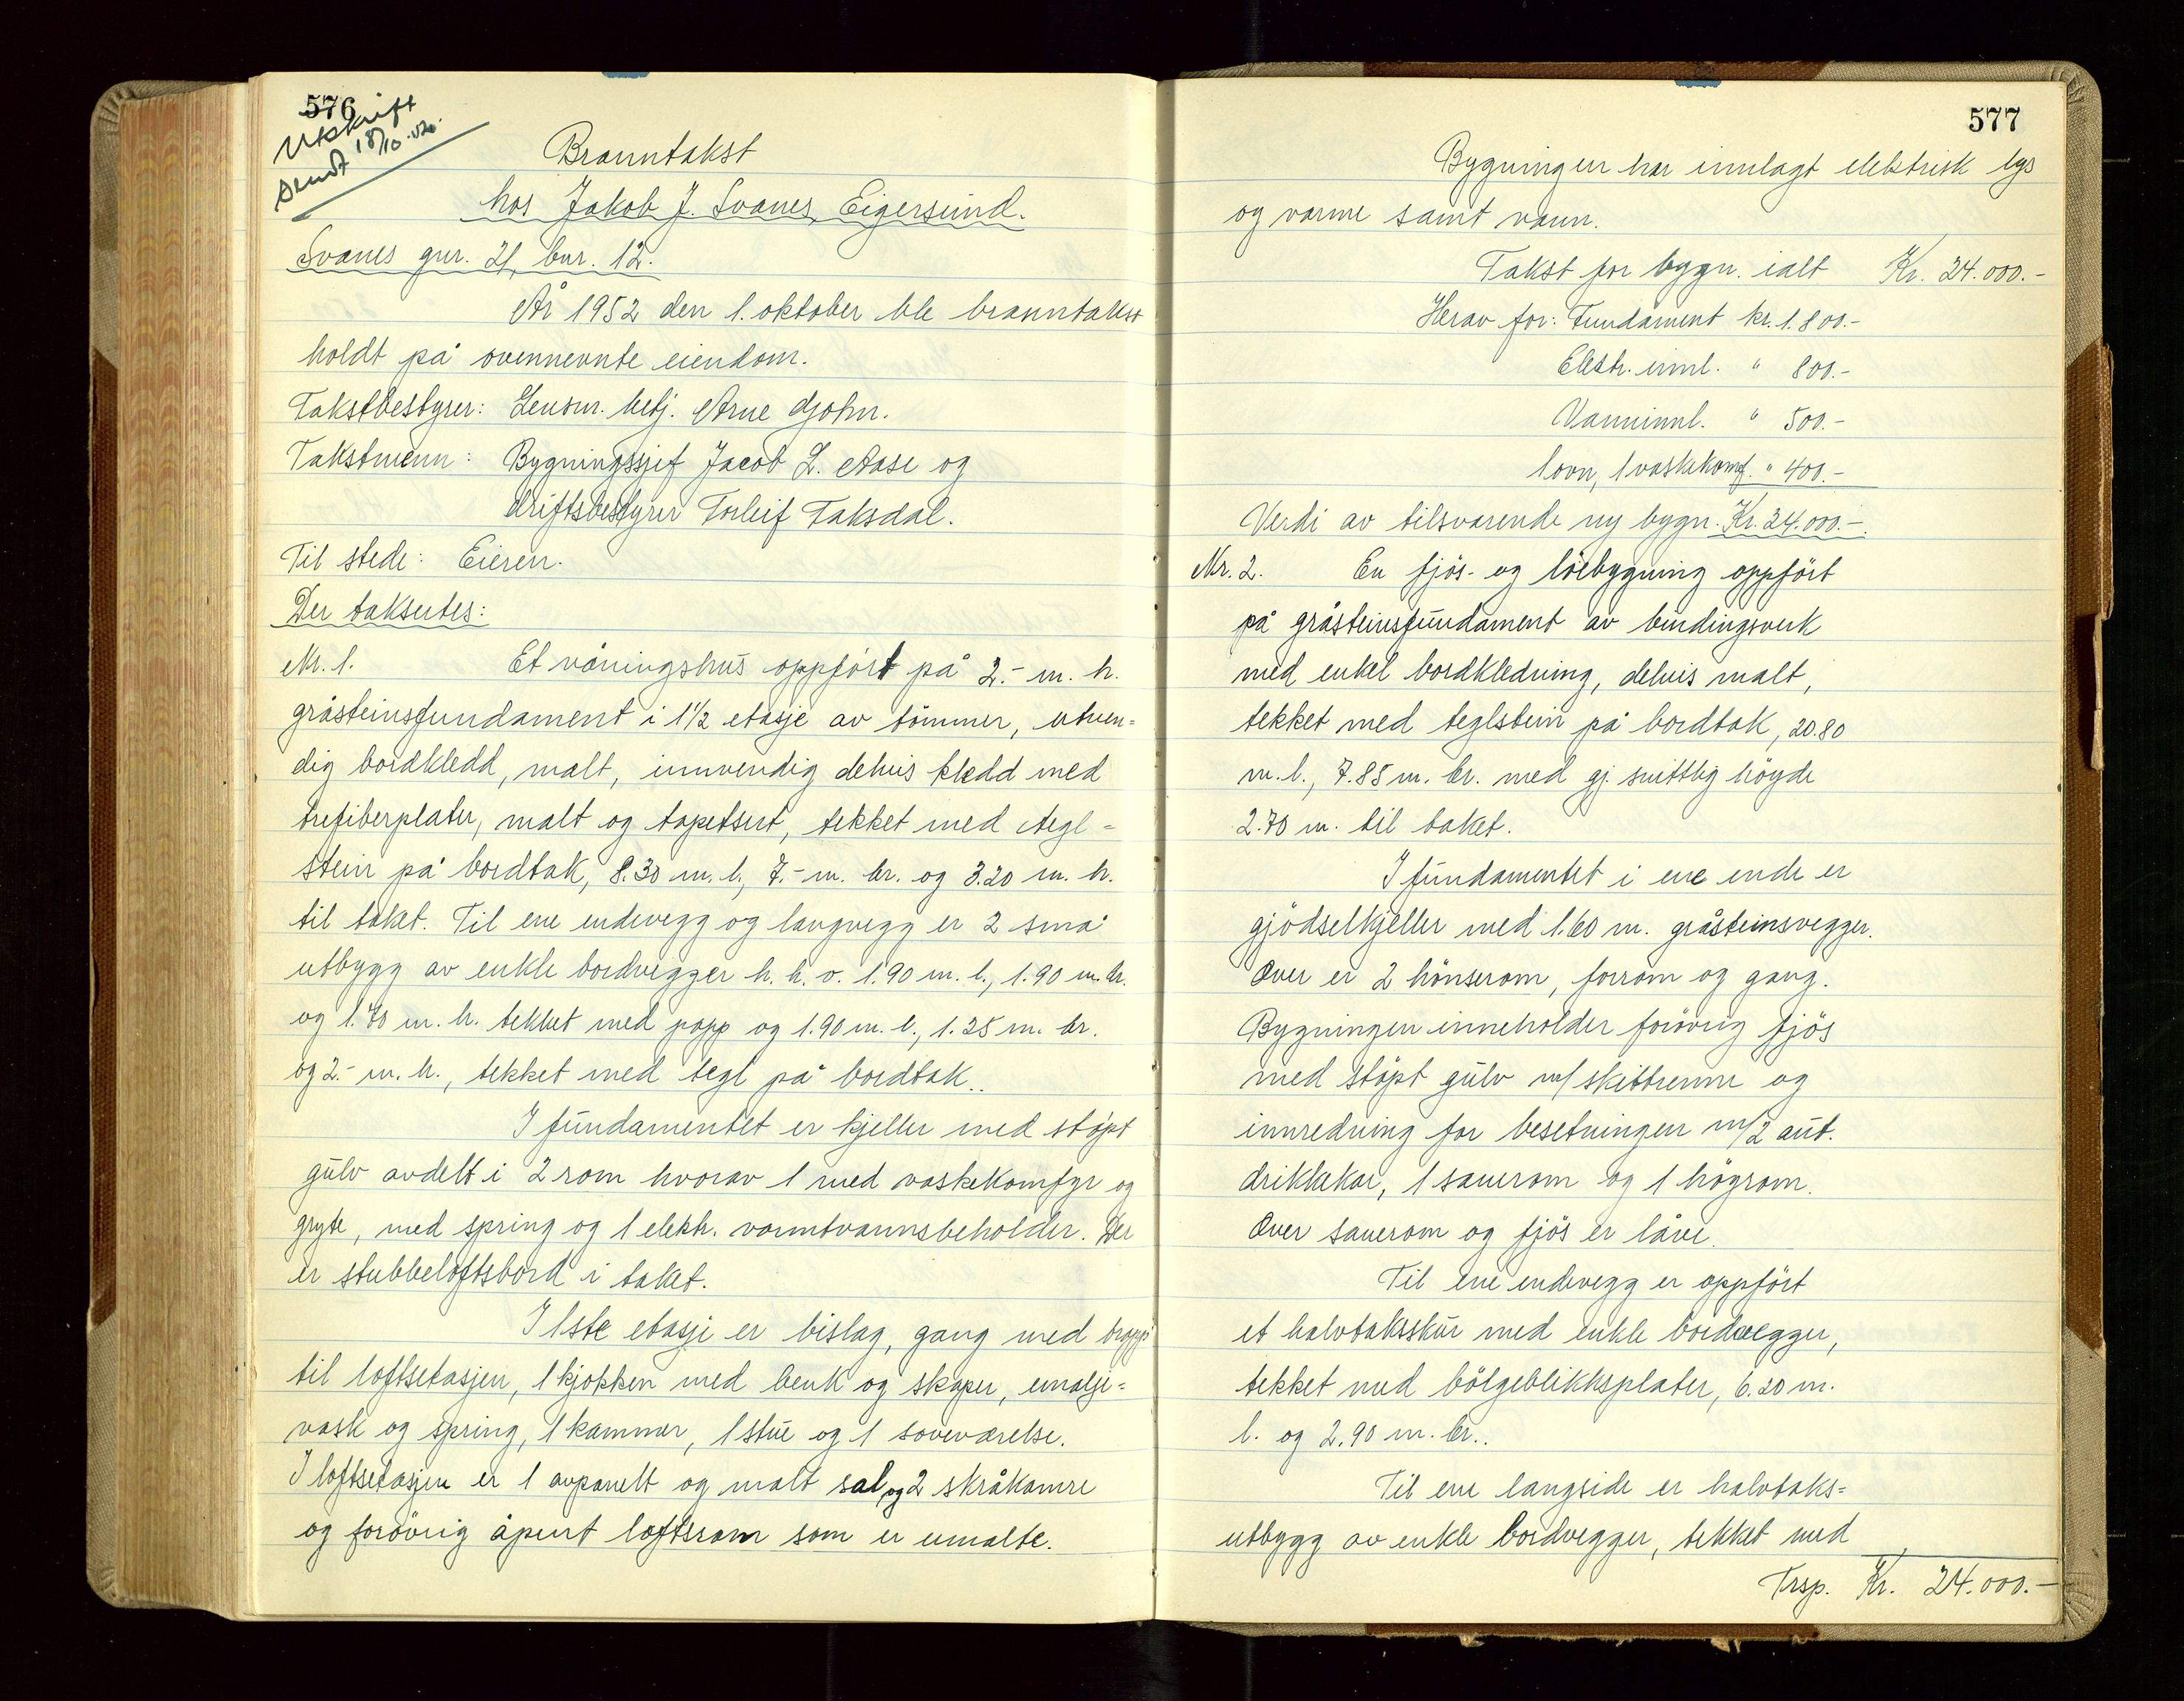 576
Utskrift
sendt 18/10.52.
Branntakst
hos Jakob J. Svanes, Eigersund.
Svanes gnr. 21, bnr. 12.
År 1952 den 1. oktober ble branntakst
holdt på ovennevnte eiendom.
Takstbestyrer: Lensm. betj. Arne Gjohn.
Takstmenn: Bygningssjef Jacob L. Aase og
driftsbestyrer Torleif Taksdal.
Til stede: Eieren.
Der taksertes:
Nr. 1. Et våningshus oppfört på 2.- m. h.
gråsteinsfundament i 1 1/2 etasje av tömmer, utven=
dig bordkledd, malt, innvendig delvis kledd med
trefiberplater, malt og tapetsert, tekket med tegl=
stein på bordtak, 8.30 m. l., 7.- m. br. og 3.20 m. h.
til taket. Til ene endevegg og langvegg er 2 små
utbygg av enkle bordvegger h. h. v. 1.90 m. l., 1.90 m. br.
og 1.70 m. h. tekket med papp og 1.90 m. l., 1.25 m. br.
og 2.- m. h., tekket med tegl på bordtak..
I fundamentet er kjeller med støpt
gulv avdelt i 2 rom hvorav 1 med vaskekomfyr og
gryte, med spring og 1 elektr. varmtvannsbeholder. Der
er stubbeloftsbord i taket.
I 1ste etasje er bislag, gang med trapp
til loftsetasjen, 1 kjøkken med benk og skaper, emalje=
vask og spring, 1 kammer, 1 stue og 1 soveværelse.
I loftsetasjen er 1 avpanelt og malt sal, og 2 skråkamre
og forövrig åpent loftsrom som er umalte.
577
Bygningen har innlagt elektrisk lys
og varme samt vann.
Takst for bygn. ialt Kr. 24.000.-
Herav for: Fundament kr. 1.800.-
Elektr. innl. " 800.-
Vanninnl. " 500.-
1 ovn, 1 vaskekomf. " 400.-
Verdi av tilsvarende ny bygn. Kr. 34.000.-.
Nr. 2. En fjös- og löebygning oppfört
på gråsteinsfundament av bindingsverk
med enkel bordkledning, delvis malt,
tekket med teglstein på bordtak, 20.80
m. l., 7.85 m. br. med gj. snittlig höyde
2.70 m. til taket.
I fundamentet i ene ende er
gjödselkjeller med 1.60 m. gråsteinsvegger.
Over er 2 hönserom, forrom og gang.
Bygningen inneholder forövrig fjös
med støpt gulv m/ skittrenne og
innredning for besetningen m/2 aut.
drikkekar, 1 sauerom og 1 högrom.
Over sauerom og fjös er låve.
Til ene endevegg er oppfört
et halvtaksskur med enkle bordvegger,
tekket med bölgeblikksplater, 6.20 m.
l. og 2.90 m. br..
Til ene langside er halvtaks=
utbygg av enkle bordvegger, tekket med
Trsp. Kr. 24.000.-